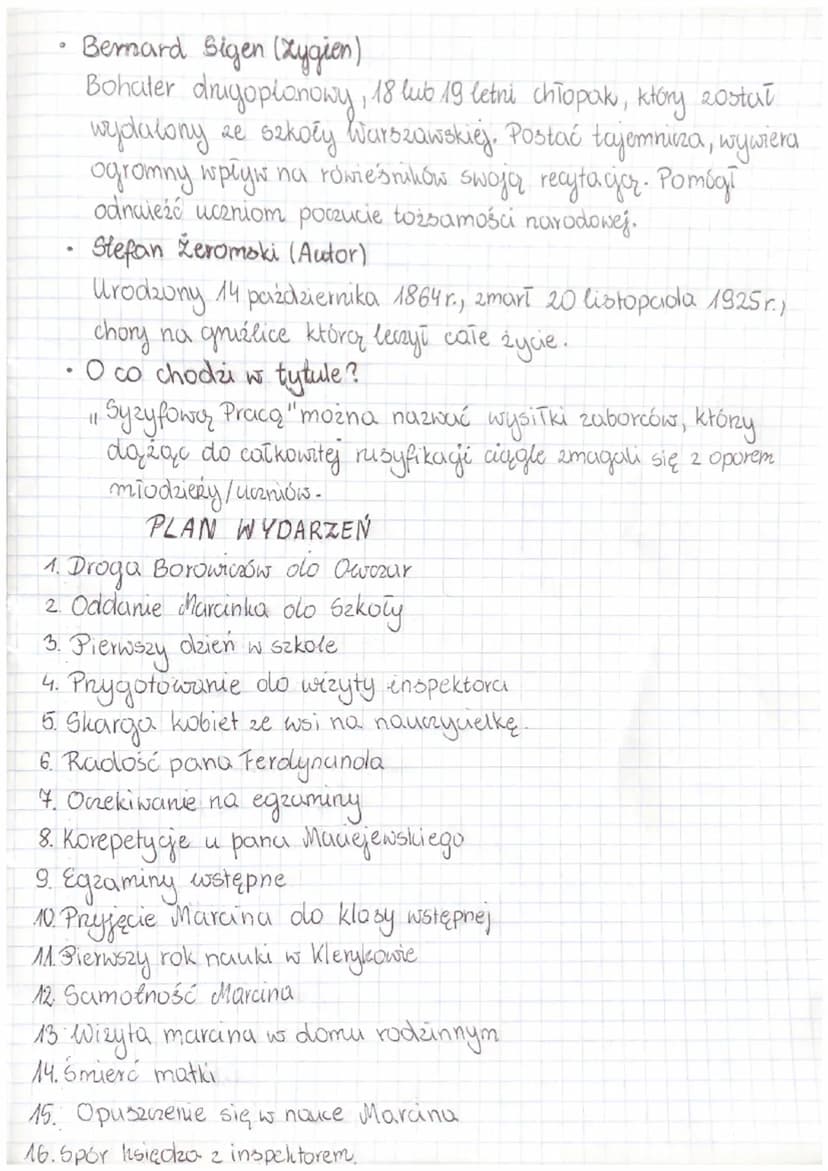 • Bernard Sigen (Zygien)
Bohater drugoplanowy, 18 lub 19 letni chłopak, który został
wydalony ze szkoły Warszawskiej. Postać tajemnicza, wywiera
ogromny wpływ na rówieśników swoją recytacją. Pomógł
odnaleźć uczniom poczucie tożsamości narodowej.
• Stefan Żeromski (Autor)
Urodzony 14 października 1864r., zmarł 20 listopada 1925r.,
chory na gruźlice którą leczył całe życie.
• O co chodzi w tytule?
„Syzyfową Pracą" można nazwać wysiłki zaborców, którzy
dążąc do całkowitej rusyfikacji ciągle zmagali się z oporem
młodzieży/uczniów.
PLAN WYDARZEŃ
1. Droga Borowiczów do Owczar
2. Oddanie Marcinka do Szkoły
3. Pierwszy dzień w szkole
4. Przygotowanie do wizyty inspektora
5. Skarga kobiet ze wsi na nauczycielkę.
6. Radość pana Ferdynanda
7. Oczekiwanie na egzaminy
8. Korepetycje u pana Maciejewskiego
9. Egzaminy wstępne
10. Przyjęcie Marcina do klasy wstępnej
11. Pierwszy rok nauki w Klerykowie
12. Samotność Marcina
13. Wizyta marcina w domu rodzinnym
14. Śmierć matki
15. Opuszczenie się w nauce Marcina
16. Spór księdza z inspektorem.